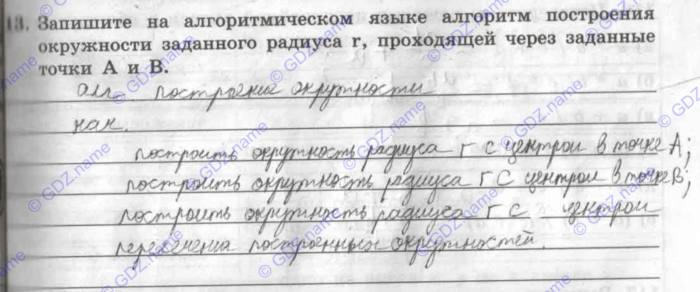 13. Запишите на алгоритмическом языке алгоритм построения
окружности заданного радиуса r, проходящей через заданные
точки A и B.
алг. построение окружности
нач.
построить окружность радиуса r с центром в точке A;
построить окружность радиуса r с центром в точке B;
построить окружность радиуса r с центром
пересечения построенных окружностей.
© GDZ.name